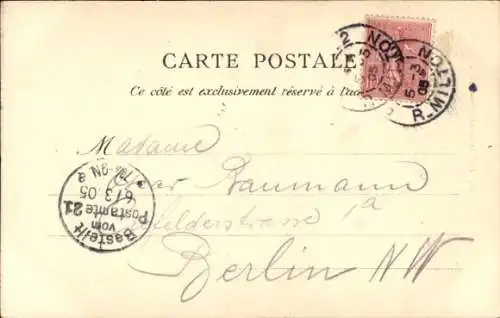 CARTE POSTALE
Ce côté est exclusivement réservé à l'a
Madame
Baumann
strasse 1a
Berlin NW
R. MILTON
5 -3
05
Bestellt
vom
Postamte 21
6/3 05